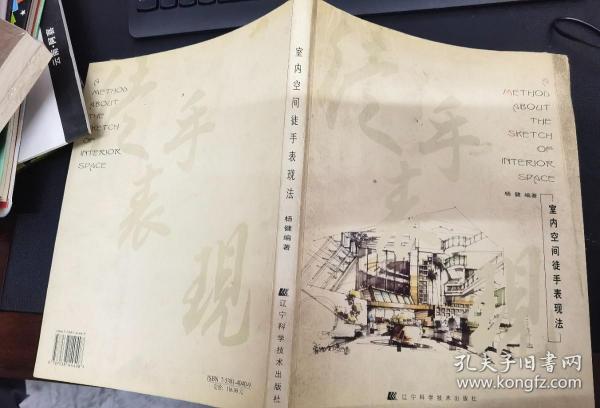 A
METHOD
ABOUT
THE
SKETCH
OF
INTERIOR
SPACE
徒手表现
室内空间徒手表现法
杨健编著
辽宁科学技术出版社
A
METHOD
ABOUT
THE
SKETCH
OF
INTERIOR
SPACE
杨 健 编著
室内空间徒手表现法
辽宁科学技术出版社
云南·阿普
孔夫子旧书网
www.kongfz.com